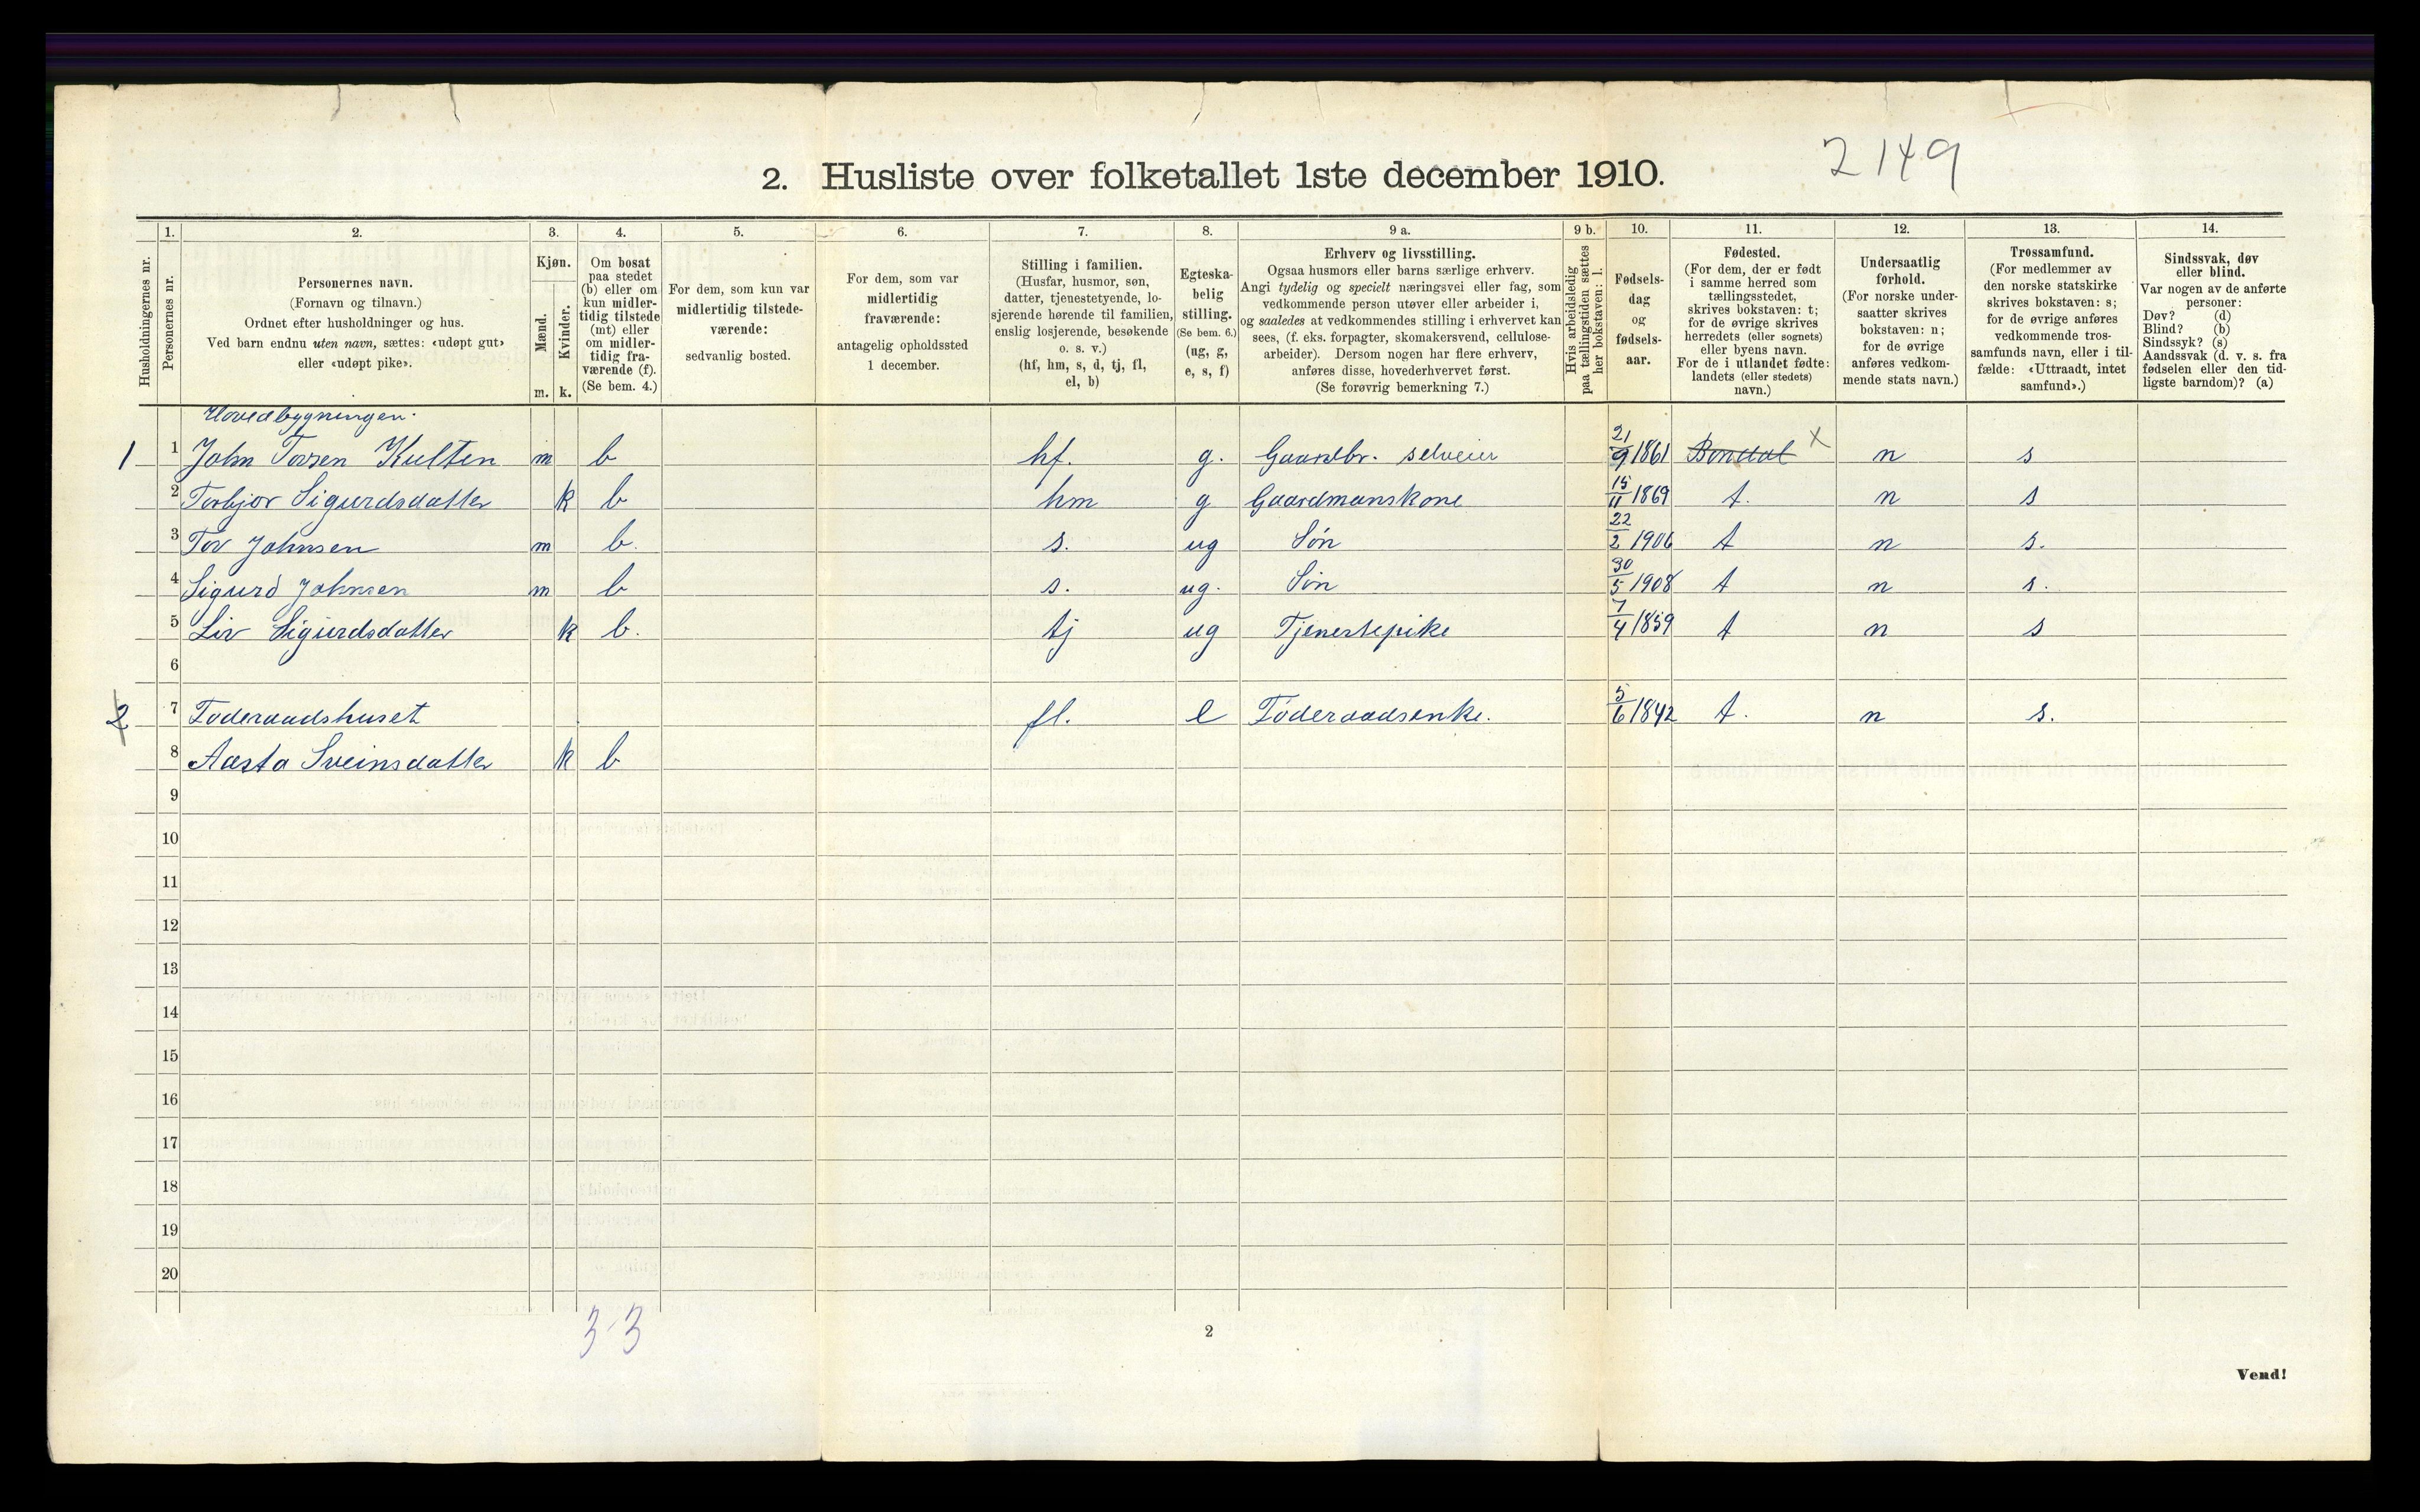 2149
2. Husliste over folketallet 1ste december 1910.
Husholdningernes nr.
1. Personernes nr.
2. Personernes navn. (Fornavn og tilnavn.) Ordnet efter husholdninger og hus. Ved barn endnu uten navn, sættes: «udøpt gut» eller «udøpt pike».
3. Kjøn. Mænd. m. Kvinder. k.
4. Om bosat paa stedet (b) eller om kun midlertidig tilstede (mt) eller om midlertidig fraværende (f). (Se bem. 4.)
5. For dem, som kun var midlertidig tilstedeværende: sedvanlig bosted.
6. For dem, som var midlertidig fraværende: antagelig opholdssted 1 december.
7. Stilling i familien. (Husfar, husmor, søn, datter, tjenestetyende, losjerende hørende til familien, enslig losjerende, besøkende o. s. v.) (hf, hm, s, d, tj, fl, el, b)
8. Egteskabelig stilling. (Se bem. 6.) (ug, g, e, s, f)
9 a. Erhverv og livsstilling. Ogsaa husmors eller barns særlige erhverv. Angi tydelig og specielt næringsvei eller fag, som vedkommende person utøver eller arbeider i, og saaledes at vedkommendes stilling i erhvervet kan sees, (f. eks. forpagter, skomakersvend, cellulosearbeider). Dersom nogen har flere erhverv, anføres disse, hovederhvervet først. (Se forøvrig bemerkning 7.)
9 b. Hvis arbeidsledig paa tællingstiden sættes her bokstaven: l.
10. Fødselsdag og fødselsaar.
11. Fødested. (For dem, der er født i samme herred som tællingsstedet, skrives bokstaven: t; for de øvrige skrives herredets (eller sognets) eller byens navn. For de i utlandet fødte: landets (eller stedets) navn.)
12. Undersaatlig forhold. (For norske undersaatter skrives bokstaven: n; for de øvrige anføres vedkommende stats navn.)
13. Trossamfund. (For medlemmer av den norske statskirke skrives bokstaven: s; for de øvrige anføres vedkommende trossamfunds navn, eller i tilfælde: «Uttraadt, intet samfund».)
14. Sindssvak, døv eller blind. Var nogen av de anførte personer: Døv? (d) Blind? (b) Sindssyk? (s) Aandssvak (d. v. s. fra fødselen eller den tidligste barndom)? (a)
Hovedbygningen.
1 1 John Torsen Kulten m b hf. g. Gaardbr. selveier 21/9 1861 Bondal x n s
2 Torbjor Sigurdsdatter k b hm g Gaardmanskone 15/11 1869 t. n s
3 Tov Johnsen m b. s. ug Søn 22/2 1906 t n s.
4 Sigurd Johnsen m b s. ug. Søn 30/5 1908 t n s.
5 Liv Sigurdsdatter k b. tj ug Tjenestepike 7/4 1859 t n s
6
2 7 Føderaadshuset fl. e Føderaadsenke. 5/6 1842 t. n s.
8 Aasta Sveinsdatter k b
9
10
11
12
13
14
15
16
17
18
19
20
3-3
2
Vend!